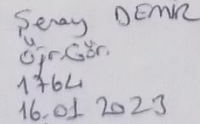 Şeray DEMİR
Öğr. Gör.
1764
16.01 2023